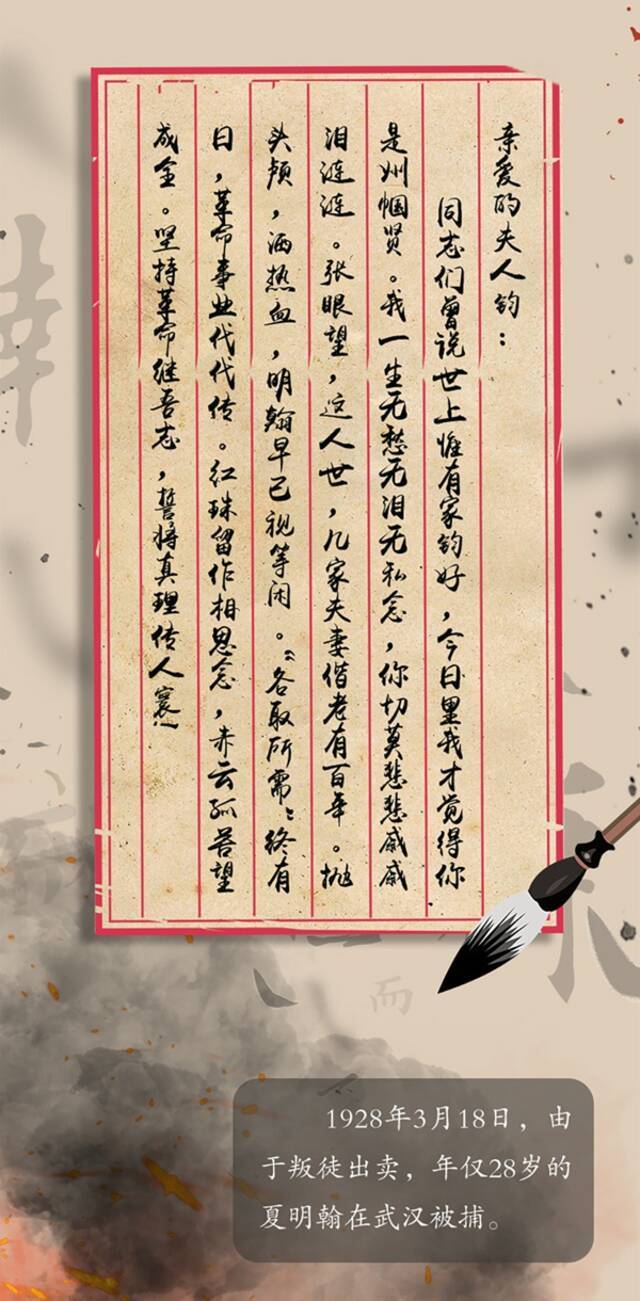 亲爱的夫人钧：
同志们曾说世上惟有家钧好，今日里我才觉得你
是巾帼贤。我一生无愁无泪无私念，你切莫悲悲戚戚
泪涟涟。张眼望，这人世，几家夫妻偕老有百年。抛
头颅，洒热血，明翰早已视等闲。“各取所需”终有
日，革命事业代代传。红珠留作相思念，赤云孤苦望
成全。坚持革命继吾志，誓将真理传人寰！
而
1928年3月18日，由
于叛徒出卖，年仅28岁的
夏明翰在武汉被捕。